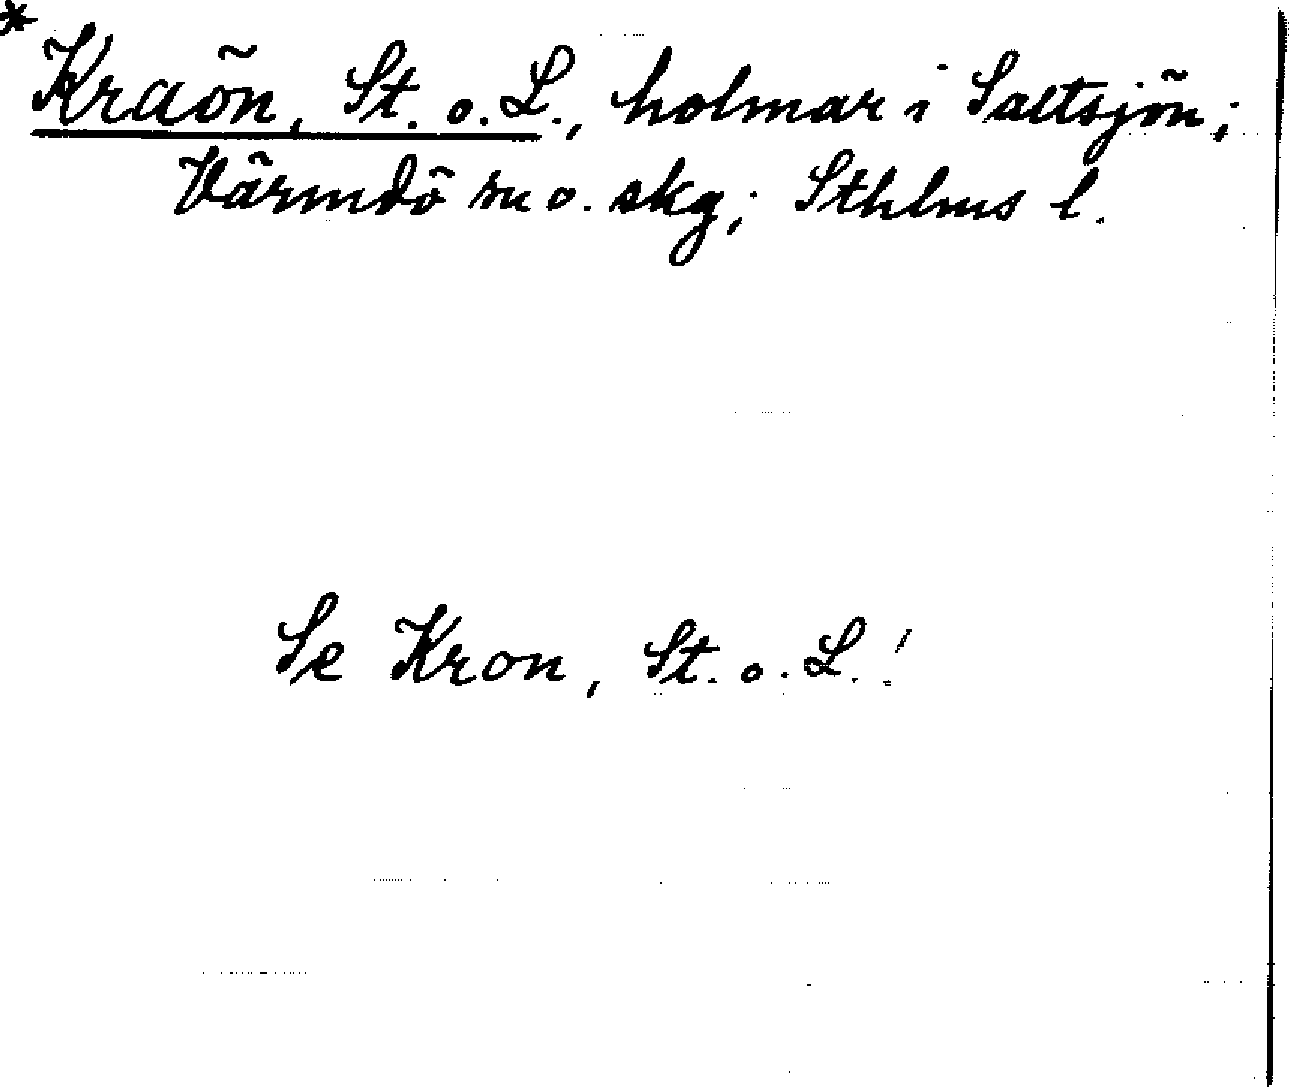 * Kraön, St. o. L., holmar i Saltsjön;
Värmdö sn o. skg; Sthlms l.
Se Kron, St. o. L.!